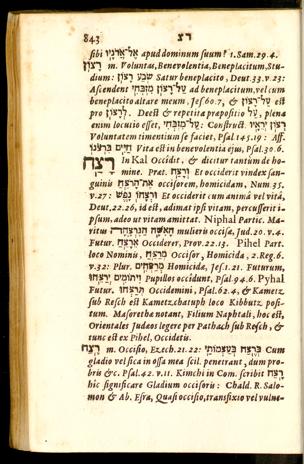 843 רצ
sibi אל־אדניו apud dominum suum? 1. Sam. 29. 4.
רצון m. Voluntas, Benevolentia, Beneplacitum, Stu-
dium: שבע רצון Satur beneplacito, Deut. 33. v. 23:
Ascendent על־רצון מזבחי ad beneplacitum, vel cum
beneplacito altare meum, Jes. 60. 7, & על־רצון est
pro לרצון. Deest & repetita præpositio על, plena
enim locutio esset, על־מזבחי: Construct.
רצון יראיו Voluntatem timentium se faciet, Psal. 145. 19: Aff.
חיים ברצונו Vita est in benevolentia ejus, Psal. 30. 6.
רצח In Kal Occidit, & dicitur tantum de ho-
mine. Præt. ורצח Et occiderit vindex san-
guinis את־הרצח occisorem, homicidam, Num. 35.
v. 27: ורצחו נפש Et occiderit eum animâ vel vitâ,
Deut. 22. 26, id est, adimat ipsi vitam, percusserit i-
psum, adeo ut vitam amittat. Niphal Partic. Ma-
ritus האשה הנרצחה mulieris occisæ, Jud. 20. v. 4.
Futur. ארצח Occiderer, Prov. 22. 13. Pihel Part.
loco Nominis, מרצח Occisor, Homicida, 2. Reg. 6.
v. 32: Plur. מרצחים Homicidæ, Jes. 1. 21. Futurum,
ויתומים ירצחו Pupillos occidunt, Psal. 94. 6. Pyhal
Futur. תרצחו Occidemini, Psal. 62. 4, & Kametz
sub Resch est Kametzchatuph loco Kibbutz posi-
tum. Masoretha notant, Filium Naphtali, hoc est,
Orientales Judæos legere per Pathach sub Resch, &
tunc est ex Pihel, Occidetis.
רצח m. Occisio, Ezech. 21. 22: ברצח בעצמותי Cum
gladio vel sica in ossa mea scil. penetrant, dum pro-
bris &c. Psal. 42. v. 11. Kimchi in Com. scribit רצח
hic significare Gladium occisoris: Chald. R. Salo-
mon & Ab. Esra, Quasi occisio, transfixio vel vulne-